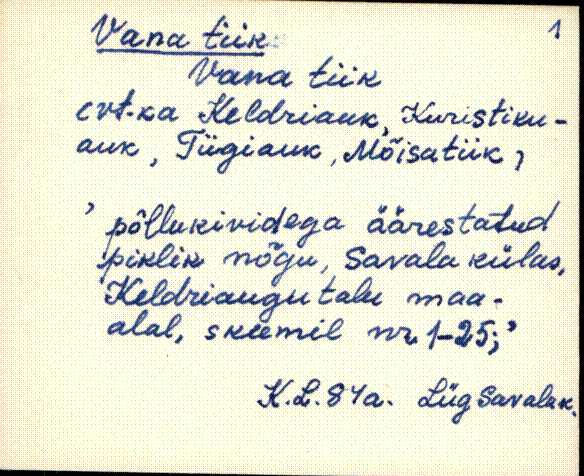 1
Vana tiik
Vana tiik
cvt-ka Keldriauk, Kuristiku-
auk, Tiigiauk, Mõisatiik,
' põllukividega äärestatud
piklik nõgu, Savala külas,
Keldriaugu talu maa-
alal, skeemil nr. 1-25;'
K.L. 84a. Lüg Savala k.